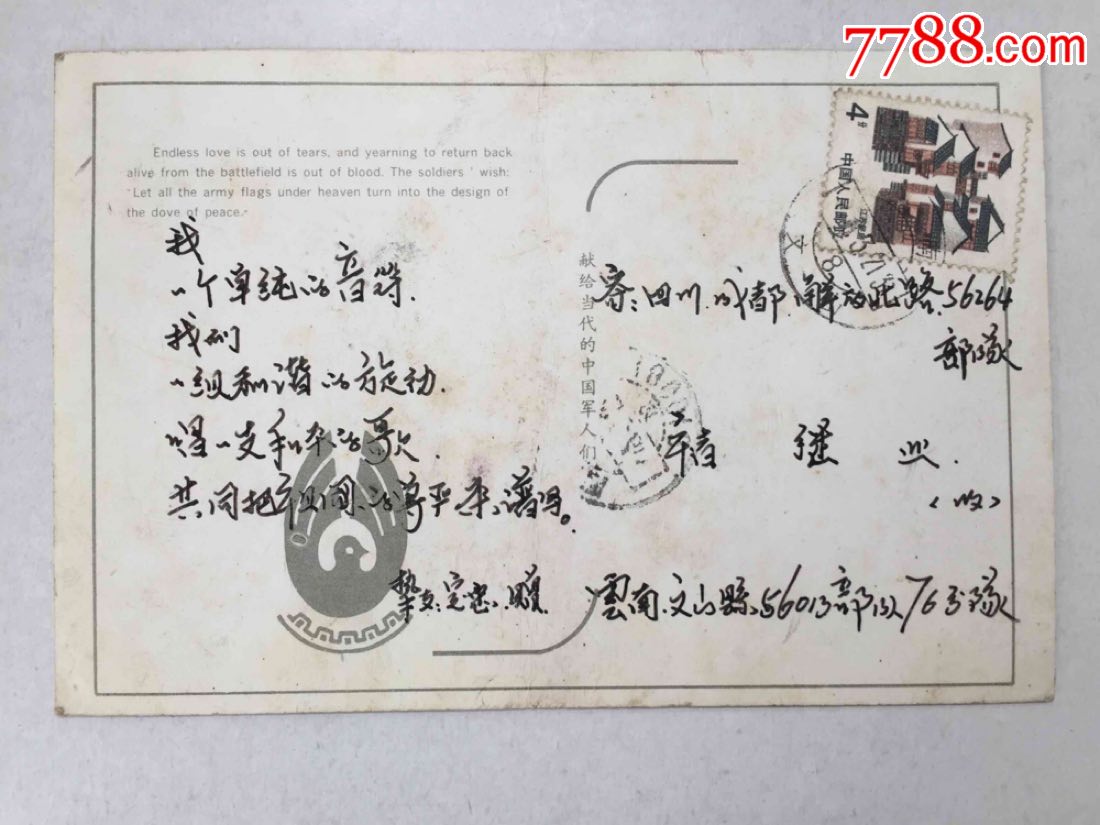 7788.com
Endless love is out of tears, and yearning to return back
alive from the battlefield is out of blood. The soldiers ' wish:
"Let all the army flags under heaven turn into the design of
the dove of peace."
我
一个单纯的音符.
我们
一组和谐的旋动.
唱一支和平的歌.
共同把祖国的尊严来谱写。
挚友:
献给当代的中国军人们
4分
中国人民邮政
文
8
寄:四川.成都.解放北路.56264
部隊
继
(收)
雲南.文山縣.56013部队76分隊